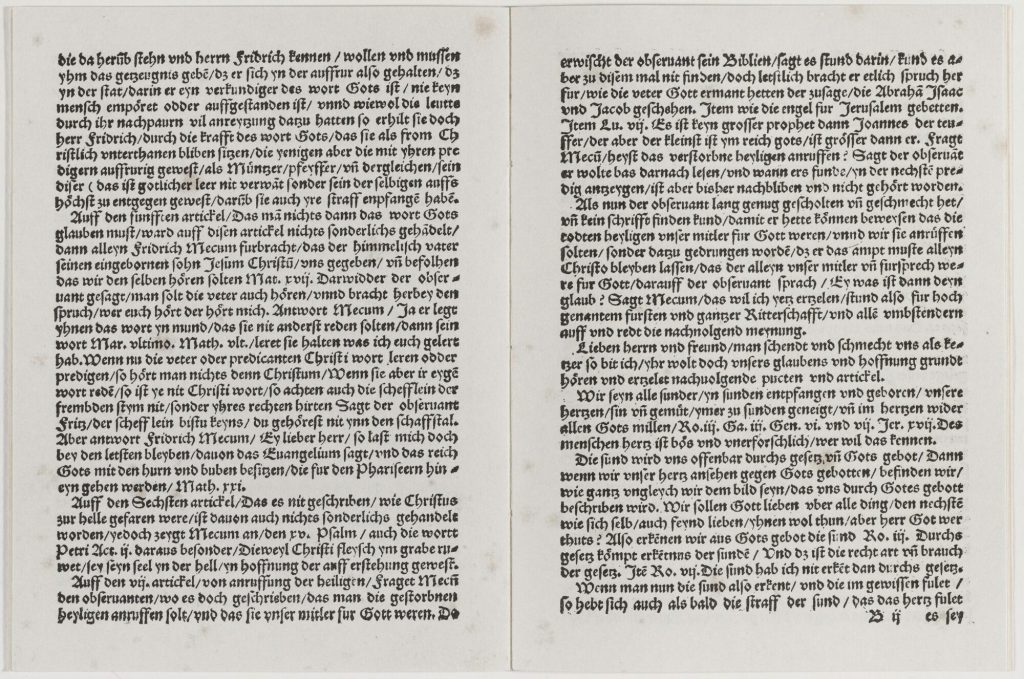 die da herüb stehn vnd herrn Fridrich kennen/ wollen vnd mussen
yhm das getzeugnis gebē/ dz er sich yn der auffrur also gehalten/ dz
yn der stat/ darin er eyn verkundiger des wort Gots ist/ nie keyn
mensch empöret odder auffgestanden ist/ vnnd wiewol die leutte
durch ihr nachpaurn vil anreytzung datzu hatten so erhilt sie doch
herr Fridrich/ durch die krafft des wort Gots/ das sie als from Ch
ristlich vnterthanen bliben sitzen/ die yenigen aber die mit yhren pre
digern auffrurig gewest/ als Müntzer/ pfeyffer/ vñ dergleichen/ sein
diser ( das ist gotlicher leer nit verwāt sonder sein der selbigen auffs
höchst zu entgegen gewest/ darüb sie auch yre straff enpfangē habē.
Auff den funfften artickel/ Das mā nichts dann das wort Gots
glauben must/ ward auff disen artickel nichts sonderlichs gehādelt/
dann alleyn Fridrich Mecum furbracht/ das der himmelisch vater
seinen eingebornen sohn Jesum Christū/ vns gegeben/ vñ befolhen
das wir den selben hören solten Mat. xvij. Darwidder der obser-
uant gesagt/ man solt die veter auch hören/ vnnd bracht herbey den
spruch/ wer euch hört der hört mich. Antwort Mecum/ Ja er legt
yhnen das wort yn mund/ das sie nit anderst reden solten/ dann sein
wort Mar. vltimo. Math. vlt./ leret sie halten was ich euch gelert
hab. Wenn nu die veter oder predicanten Christi wort leren odder
predigen/ so hört man nichts denn Christum/ Wenn sie aber ir eygē
wort redē/ so ist ye nit Christi wort/ so achten auch die schefflein der
frembden stym nit/ sonder yhres rechten hirten Sagt der obseruant
Fritz/ der scheff lein bistu keyns/ du gehörest nit ynn den schaffstal.
Aber antwort Fridrich Mecum/ Ey lieber herr/ so last mich doch
bey den letsten bleyben/ dauon das Euangelium sagt/ vnd das reich
Gots mit den hurn vnd buben besitzen/ die fur den Phariseern hin-
eyn gehen werden/ Math. xxi.
Auff den Sechsten artickel/ Das es nit geschriben/ wie Christus
zur helle gefaren were/ ist dauon auch nichts sonderlichs gehandelt
worden/ yedoch zeygt Mecum an/ den xv. Psalm/ auch die wortt
Petri Act. ij. daraus besonder/ Dieweyl Christi fleysch yn grabe ru-
wet/ sey seyn seel yn der hell/ yn hoffnung der auff erstehung gewest.
Auff den vij. artickel/ von anruffung der heiligen/ Fraget Mecū
den obseruanten/ wo es doch geschrieben/ das man die gestorbnen
heyligen anruffen solt/ vnd das sie vnser mitler fur Gott weren. Do
erwischt der obseruant sein Biblien/ sagt es stund darin/ kund es a-
ber zu disem mal nit finden/ doch letstlich bracht er etlich spruch her
fur/ wie die veter Gott ermant hetten der zusage/ die Abrahā Isaac
vnd Jacob geschehen. Item wie die engel fur Jerusalem gebetten.
Item Lu. vij. Es ist keyn grosser prophet dann Joannes der teu-
ffer/ der aber der kleinst ist ym reich gots/ ist grösser dann er. Fragt
Mecū/ heyst das verstorbne heyligen anruffen? Sagt der obseruāt
er wolte bas darnach lesen/ vnd wann ers funde/ yn der nechstē pre-
dig antzeygen/ ist aber bisher nachbliben vnd nicht gehört worden.
Als nun der obseruant lang genug gescholten vñ geschmecht het/
vñ kein schrifft finden kund/ damit er hette können beweysen das die
todten heyligen vnser mitler fur Gott weren/ vnnd wir sie anrüffen
solten/ sonder datzu gedrungen wordē/ dz er das ampt muste alleyn
Christo bleyben lassen/ das der alleyn vnser mitler vñ fursprech we-
re fur Gott/ darauff der obseruant sprach/ Ey was ist dann deyn
glaub? Sagt Mecum/ das wil ich yetz ertzelen/ stund also fur hoch
genantem fursten vnd gantzer Ritterschafft/ vnd allē vmbstendern
auff vnd redt die nachnolgend meynung.
Lieben herrn vnd freund/ man schendt vnd schmecht vns als ke-
tzer so bit ich/ yhr wolt doch vnsers glaubens vnd hoffnung grundt
hören vnd ertzelet nachuolgende pūcten vnd artickel.
Wir seyn alle sunder/ yn sunden entpfangen vnd geboren/ vnsere
hertzen/ sin vñ gemüt/ ymer zu sunden geneigt/ vñ im hertzen wider
allen Gots willen/ Ro. iij. Ga. iij. Gen. vi. vnd vij. Jer. xvij. Des
menschen hertz ist bös vnd vnerforschlich/ wer wil das kennen.
Die sund wird vns offenbar durchs gesetz vñ Gots gebot/ Dann
wenn wir vnser hertz ansehen gegen Gots gebotten/ befinden wir/
wie gantz vngleych wir dem bild seyn/ das vns durch Gotes gebott
beschriben wird. Wir sollen Gott lieben vber alle ding/ den nechstē
wie sich selb/ auch feynd lieben/ yhnen wol thun/ aber herr Got wer
thuts? Also erkēnen wir aus Gots gebot die sund Ro. iij. Durchs
gesetz kōmpt erkētnus der sundē/ Vnd dz ist die recht art vñ brauch
der gesetz. Itē Ro. vij. Die sund hab ich nit erkēt dan durchs gesetz.
Wenn man nun die sund also erkent/ vnd die im gewissen fulet/
so hebt sich auch als bald die straff der sund/ das das hertz fulet
B ij es sey